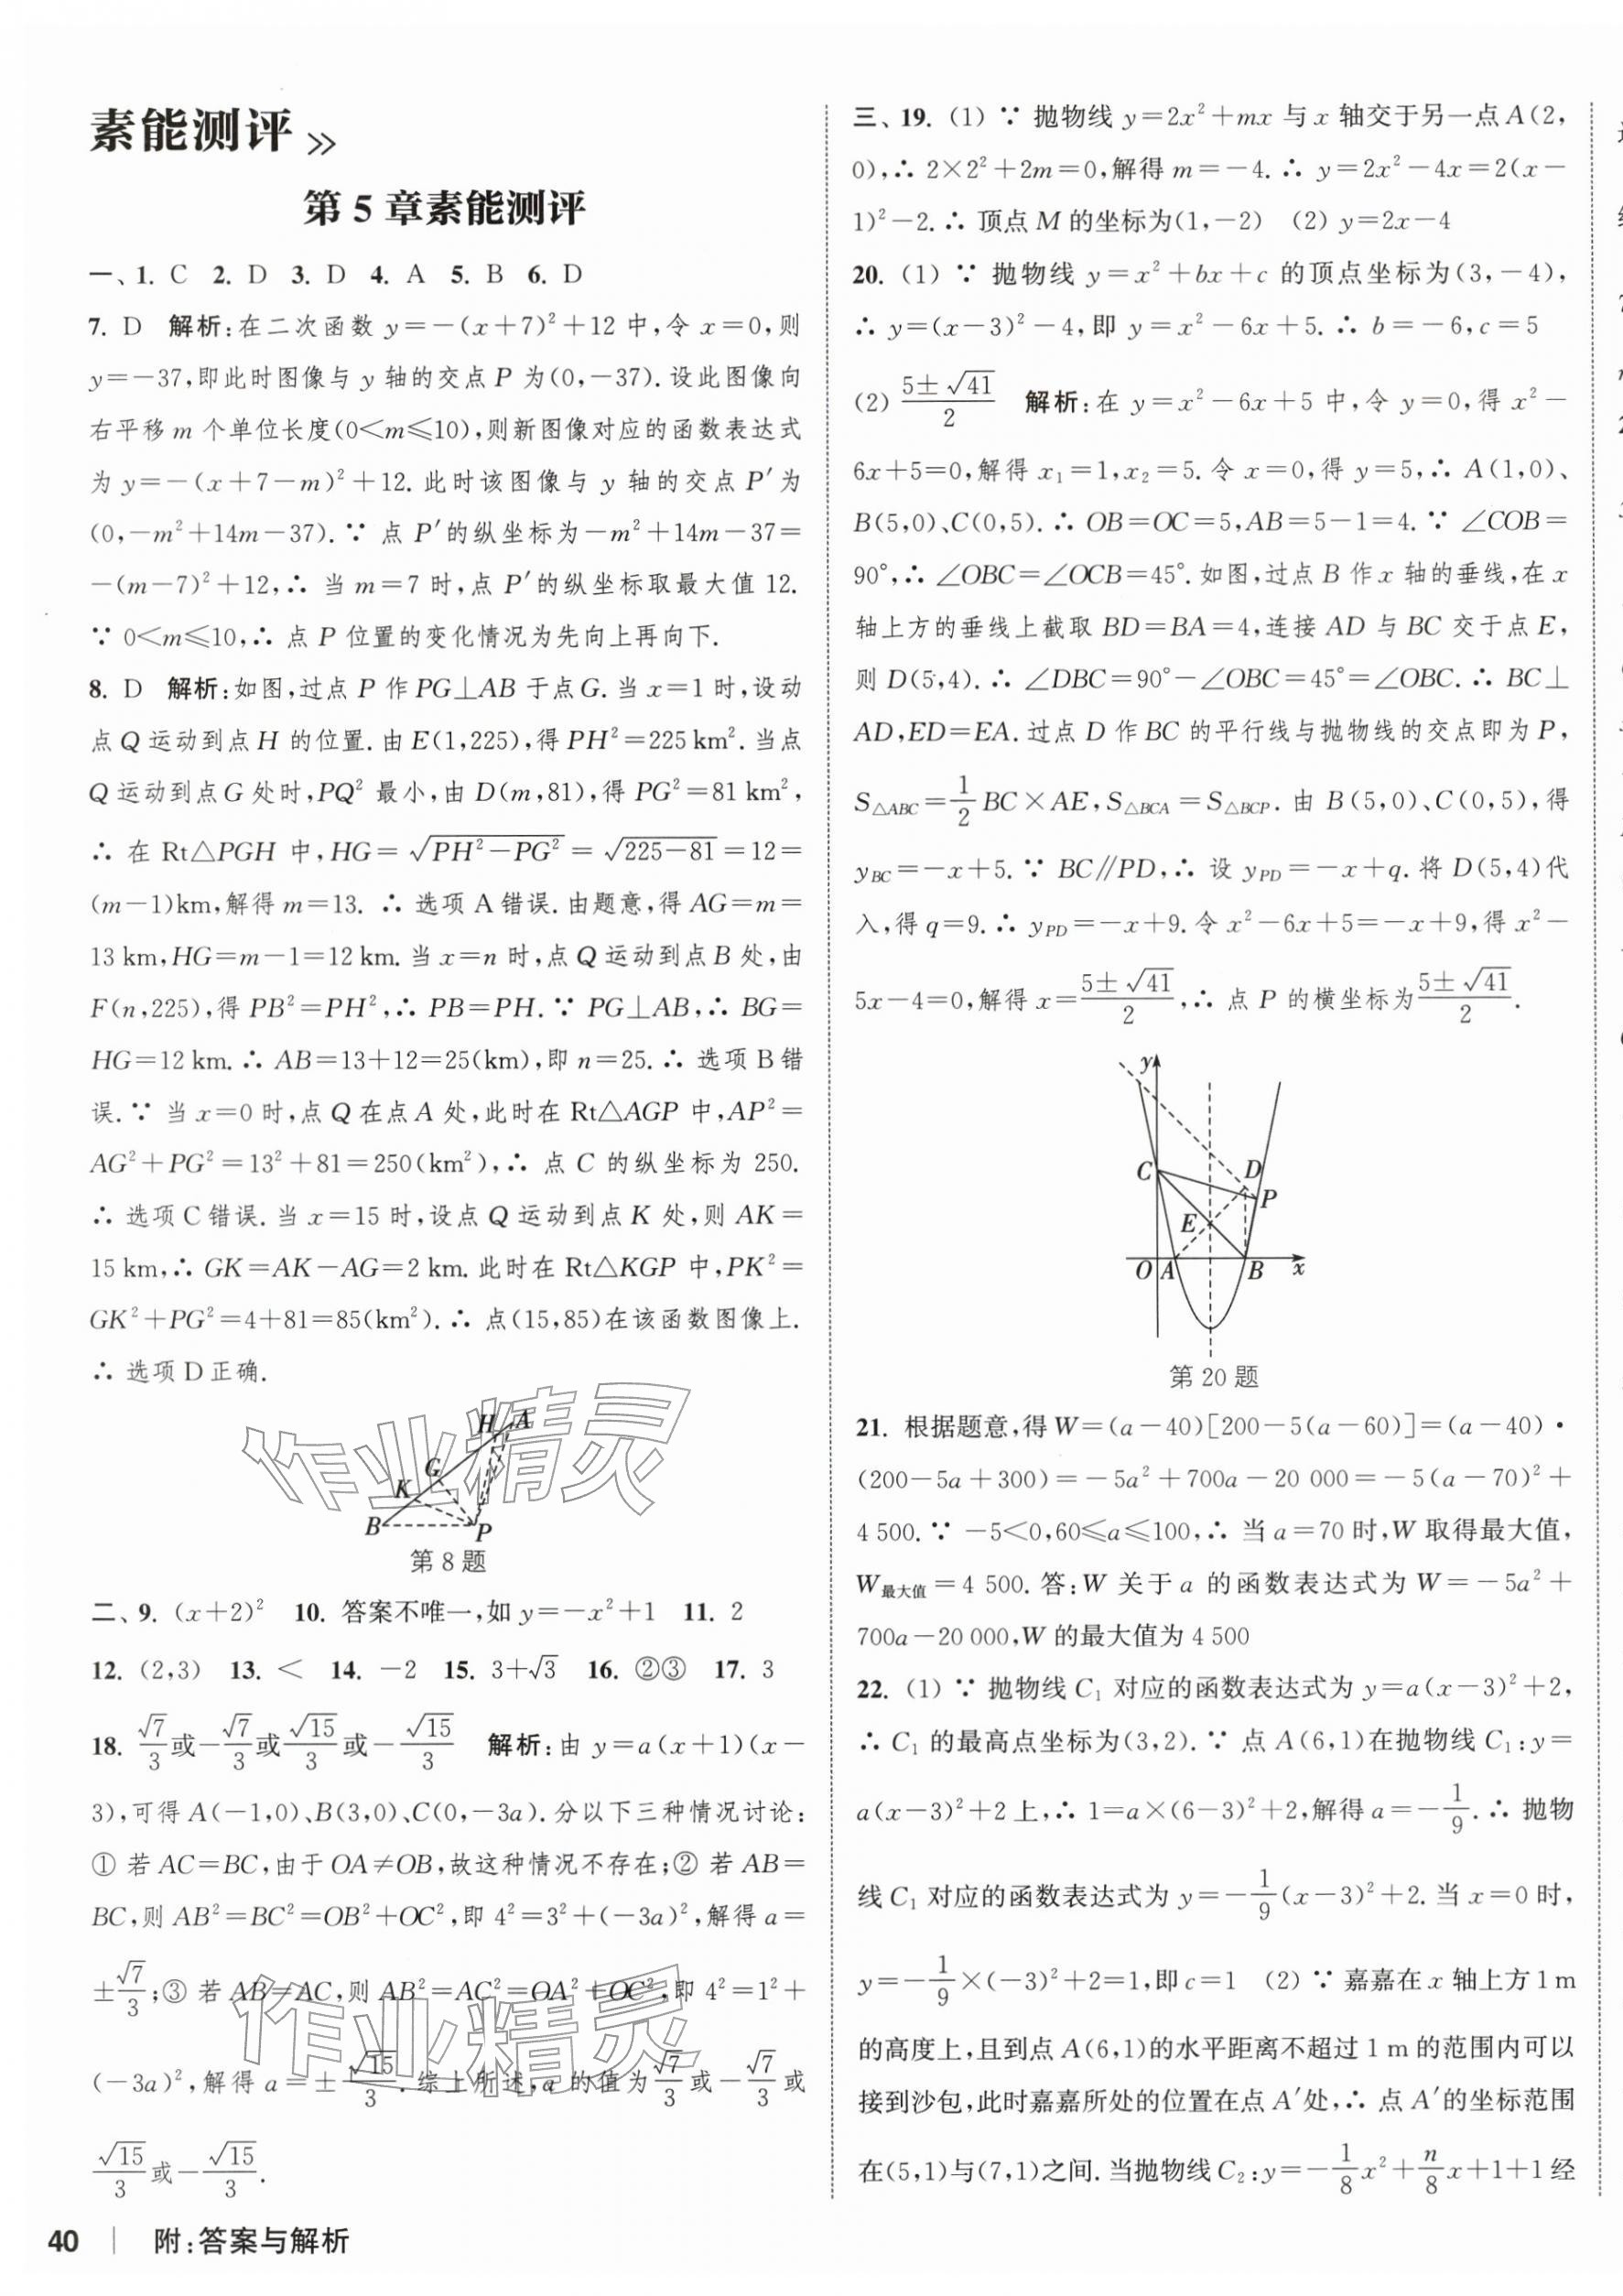 素能测评 >>
第 5 章素能测评
一、1. C 2. D 3. D 4. A 5. B 6. D
7. D 解析:在二次函数 y=-(x+7)²+12 中,令 x=0,则
y=-37,即此时图像与 y 轴的交点 P 为(0,-37). 设此图像向
右平移 m 个单位长度(0<m≤10),则新图像对应的函数表达式
为 y=-(x+7-m)²+12. 此时该图像与 y 轴的交点 P′为
(0,-m²+14m-37). ∵ 点 P′的纵坐标为-m²+14m-37=
-(m-7)²+12,∴ 当 m=7 时,点 P′的纵坐标取最大值 12.
∵ 0<m≤10,∴ 点 P 位置的变化情况为先向上再向下.
8. D 解析:如图,过点 P 作 PG⊥AB 于点G. 当 x=1 时,设动
点 Q 运动到点 H 的位置. 由 E(1,225),得 PH²=225 km². 当点
Q 运动到点 G 处时,PQ² 最小,由 D(m,81),得 PG²=81 km²,
∴ 在 Rt△PGH 中,HG=√(PH²-PG²)=√(225-81)=12=
(m-1)km,解得 m=13. ∴ 选项 A 错误. 由题意,得 AG=m=
13 km,HG=m-1=12 km. 当 x=n 时,点 Q 运动到点 B 处,由
F(n,225),得 PB²=PH²,∴ PB=PH. ∵ PG⊥AB,∴ BG=
HG=12 km. ∴ AB=13+12=25(km),即 n=25. ∴ 选项 B 错
误. ∵ 当 x=0 时,点 Q 在点 A 处,此时在 Rt△AGP 中,AP²=
AG²+PG²=13²+81=250(km²),∴ 点 C 的纵坐标为 250.
∴ 选项 C 错误. 当 x=15 时,设点 Q 运动到点 K 处,则 AK=
15 km,∴ GK=AK-AG=2 km. 此时在 Rt△KGP 中,PK²=
GK²+PG²=4+81=85(km²). ∴ 点(15,85)在该函数图像上.
∴ 选项 D 正确.
H A
G
K
B P
第 8 题
作业精灵
二、9. (x+2)² 10. 答案不唯一,如 y=-x²+1 11. 2
12. (2,3) 13. < 14. -2 15. 3+√3 16. ②③ 17. 3
18. √7/3或-√7/3或√15/3或-√15/3 解析:由 y=a(x+1)(x-
3),可得 A(-1,0)、B(3,0)、C(0,-3a). 分以下三种情况讨论:
① 若 AC=BC,由于 OA≠OB,故这种情况不存在;② 若 AB=
BC,则 AB²=BC²=OB²+OC²,即 4²=3²+(-3a)²,解得 a=
±√7/3;③ 若 AB=AC,则 AB²=AC²=OA²+OC²,即 4²=1²+
(-3a)²,解得 a=±√15/3. 综上所述,a 的值为√7/3或-√7/3或
√15/3或-√15/3.
作业精灵
40 | 附:答案与解析
三、19. (1) ∵ 抛物线 y=2x²+mx 与 x 轴交于另一点 A(2,
0),∴ 2×2²+2m=0,解得 m=-4. ∴ y=2x²-4x=2(x-
1)²-2. ∴ 顶点 M 的坐标为(1,-2) (2) y=2x-4
20. (1) ∵ 抛物线 y=x²+bx+c 的顶点坐标为(3,-4),
∴ y=(x-3)²-4,即 y=x²-6x+5. ∴ b=-6,c=5
(2) (5±√41)/2 解析:在 y=x²-6x+5 中,令 y=0,得 x²-
6x+5=0,解得 x₁=1,x₂=5. 令 x=0,得 y=5,∴ A(1,0)、
B(5,0)、C(0,5). ∴ OB=OC=5,AB=5-1=4. ∵ ∠COB=
90°,∴ ∠OBC=∠OCB=45°. 如图,过点 B 作 x 轴的垂线,在 x
轴上方的垂线上截取 BD=BA=4,连接 AD 与 BC 交于点 E,
则 D(5,4). ∴ ∠DBC=90°-∠OBC=45°=∠OBC. ∴ BC⊥
AD,ED=EA. 过点 D 作 BC 的平行线与抛物线的交点即为 P,
S△ABC=1/2 BC×AE,S△BCA=S△BCP. 由 B(5,0)、C(0,5),得
yBC=-x+5. ∵ BC∥PD,∴ 设 yPD=-x+q. 将 D(5,4)代
入,得 q=9. ∴ yPD=-x+9. 令 x²-6x+5=-x+9,得 x²-
5x-4=0,解得 x=(5±√41)/2,∴ 点 P 的横坐标为(5±√41)/2.
y
C D
P
E
O A B x
第 20 题
21. 根据题意,得 W=(a-40)[200-5(a-60)]=(a-40)·
(200-5a+300)=-5a²+700a-20 000=-5(a-70)²+
4 500. ∵ -5<0,60≤a≤100,∴ 当 a=70 时,W 取得最大值,
W最大值=4 500. 答:W 关于 a 的函数表达式为 W=-5a²+
700a-20 000,W 的最大值为 4 500
22. (1) ∵ 抛物线 C₁ 对应的函数表达式为 y=a(x-3)²+2,
∴ C₁ 的最高点坐标为(3,2). ∵ 点 A(6,1)在抛物线 C₁:y=
a(x-3)²+2 上,∴ 1=a×(6-3)²+2,解得 a=-1/9. ∴ 抛物
线 C₁ 对应的函数表达式为 y=-1/9(x-3)²+2. 当 x=0 时,
y=-1/9×(-3)²+2=1,即 c=1 (2) ∵ 嘉嘉在 x 轴上方 1 m
的高度上,且到点 A(6,1)的水平距离不超过 1 m 的范围内可以
接到沙包,此时嘉嘉所处的位置在点 A′处,∴ 点 A′的坐标范围
在(5,1)与(7,1)之间. 当抛物线 C₂:y=-1/8x²+n/8x+1+1 经